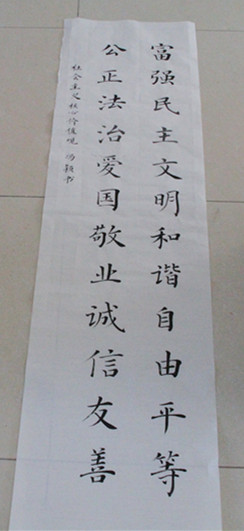 富强民主文明和谐自由平等
公正法治爱国敬业诚信友善
社会主义核心价值观 杨颖书